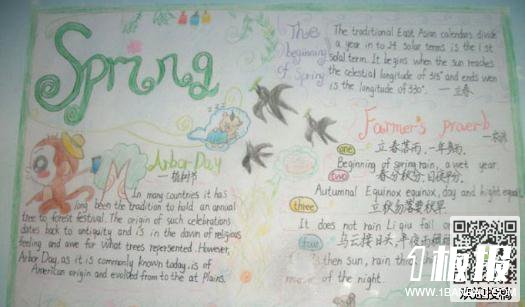 Spring
The beginning of Spring
The traditional East Asian calendars divide
a year in to 24 solar terms is the 1st
solal term. It begins when the sun reaches
the celestial longitude of 315° and ends wen
is the longitude of 330°. —立春
Arbor Day
—植树节
In many countries it has
long been the tradition to hold an annual
tree to forest festival. The origin of such celebrations
dates back to antiquity and is in the dawn of religious
feeling and awe for what trees represented. However,
Arbor Day, as it is commonly known today, is of
American origin and evolved from to the at Plains.
Farmer's proverb
one 立春落雨,一年多雨,
Beginning of spring rain, a wet year.
two 春分秋分,日夜平分,
Autumnal Equinox equinox, day and night equal
three 立秋勿落要秋旱
It does not rain Li qiu fail
four 乌云接日头,半夜雨
then sun, rain that
of the night.
1板报